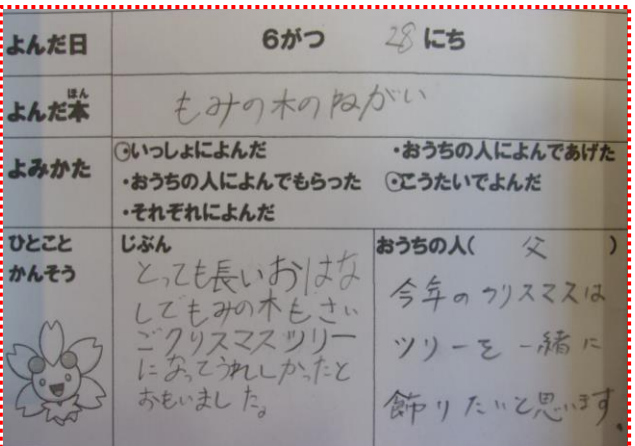 よんだ日 6がつ 28にち
よんだ本
ほん
もみの木のねがい
よみかた
・いっしょによんだ ・おうちの人によんであげた
・おうちの人によんでもらった ・こうたいでよんだ
・それぞれによんだ
ひとこと
かんそう
じぶん
とっても長いおはな
しでもみの木もさい
ごクリスマスツリー
になってうれしかったと
おもいました。
おうちの人(父)
今年のクリスマスは
ツリーを一緒に
飾りたいと思います。